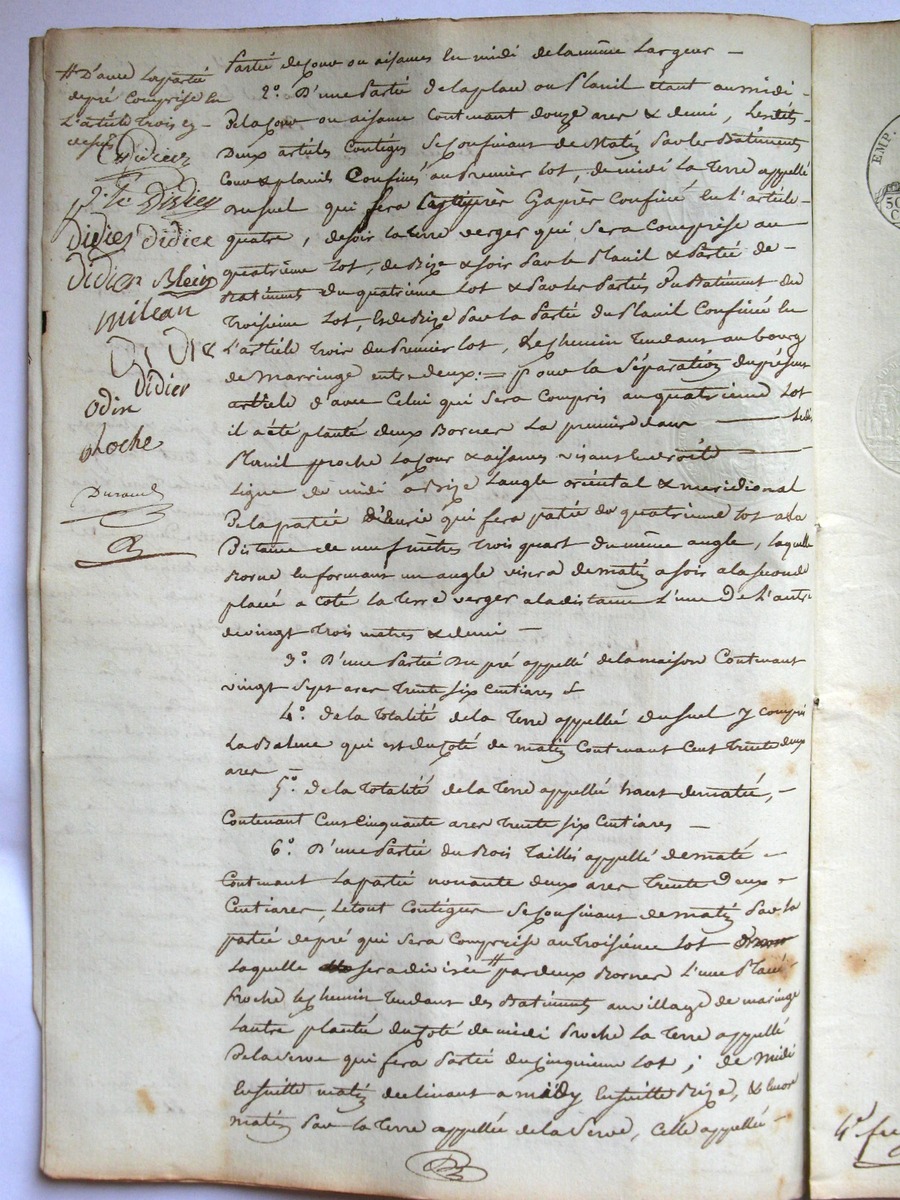 # D'avec la partie
de pré Comprise en
L'article trois cy-
dessus
Didier
Didier
Didier Didier
Didier Blein
milean
Didier
odin
ploche
Durand
Partie de cour ou aisances en midi de la même Largeur —
2.° D'une Partie de la place ou Plauil étant au midi -
De la cour ou aisance Contenant douze ares & demi, Lesdits
Deux articles Contigus Se Confinant de Matin Par les Bâtiments
Cour & plauil Confinés au Premier Lot, de midi La Terre appellé
du suel qui sera Confiné en L'article
quatre, de soir la terre verger qui Sera Comprise au
quatrième Lot, de Bize & soir Par le Plauil & Partie de -
Batiments du quatrième Lot & Par les Parties du Batiment du
Troisième Lot, & de Bize Par la Partie du Plauil Confinée en
L'article Trois du Premier Lot, Le Chemin Tendant au bourg
de Marringe entre deux :— pour la Séparation du présent
article d'avec Celui qui Sera Compris au quatrième Lot
il a été planté deux Bornes La première dans — ledit
Plauil proche La Cour & aisances visant en droite —
Ligne de midi à Bize L'angle oriental & meridional
De la partie d'écurie qui sera partie du quatrième Lot a la
Distance de neuf mètres Trois quart du même angle, laquelle
Borne en formant un angle visera de matin a soir a la seconde
placé a Coté la Terre verger a la distance L'une De L'autre
de vingt Trois metres & demi —
3.° D'une Partie Du pré appellé de la maison Contenant
vingt Sept ares Trente six Centiares
4.° de la Totalité de la Terre appellée du suel y compris
La Balme qui est du Coté de matin Contenant Cent Trente deux
ares —
5.° de la Totalité de la Terre appellé haut de maté, —
Contenant Cent Cinquante ares Trente six Centiares —
6.° D'une Partie du Bois Taillis appellé de maté -
Contenant La partie nonante deux ares Trente Deux -
Centiares, Le tout Contigus Se Confinant de matin Par la
partie de pré qui Sera Comprise au Troisième Lot
Laquelle sera divisée # par deux Bornes L'une Placée
Proche le Chemin Tendant des Batiments au village de maringe
L'autre plantée du Coté de midi Proche La Terre appellé
De la Serve qui sera Partie du Cinquieme Lot ; de Midi
Ensuitte matin declinant a midy Ensuitte Bize, & encore
matin Par la Terre appellée de la Serve, Celle appellée —
EMP.